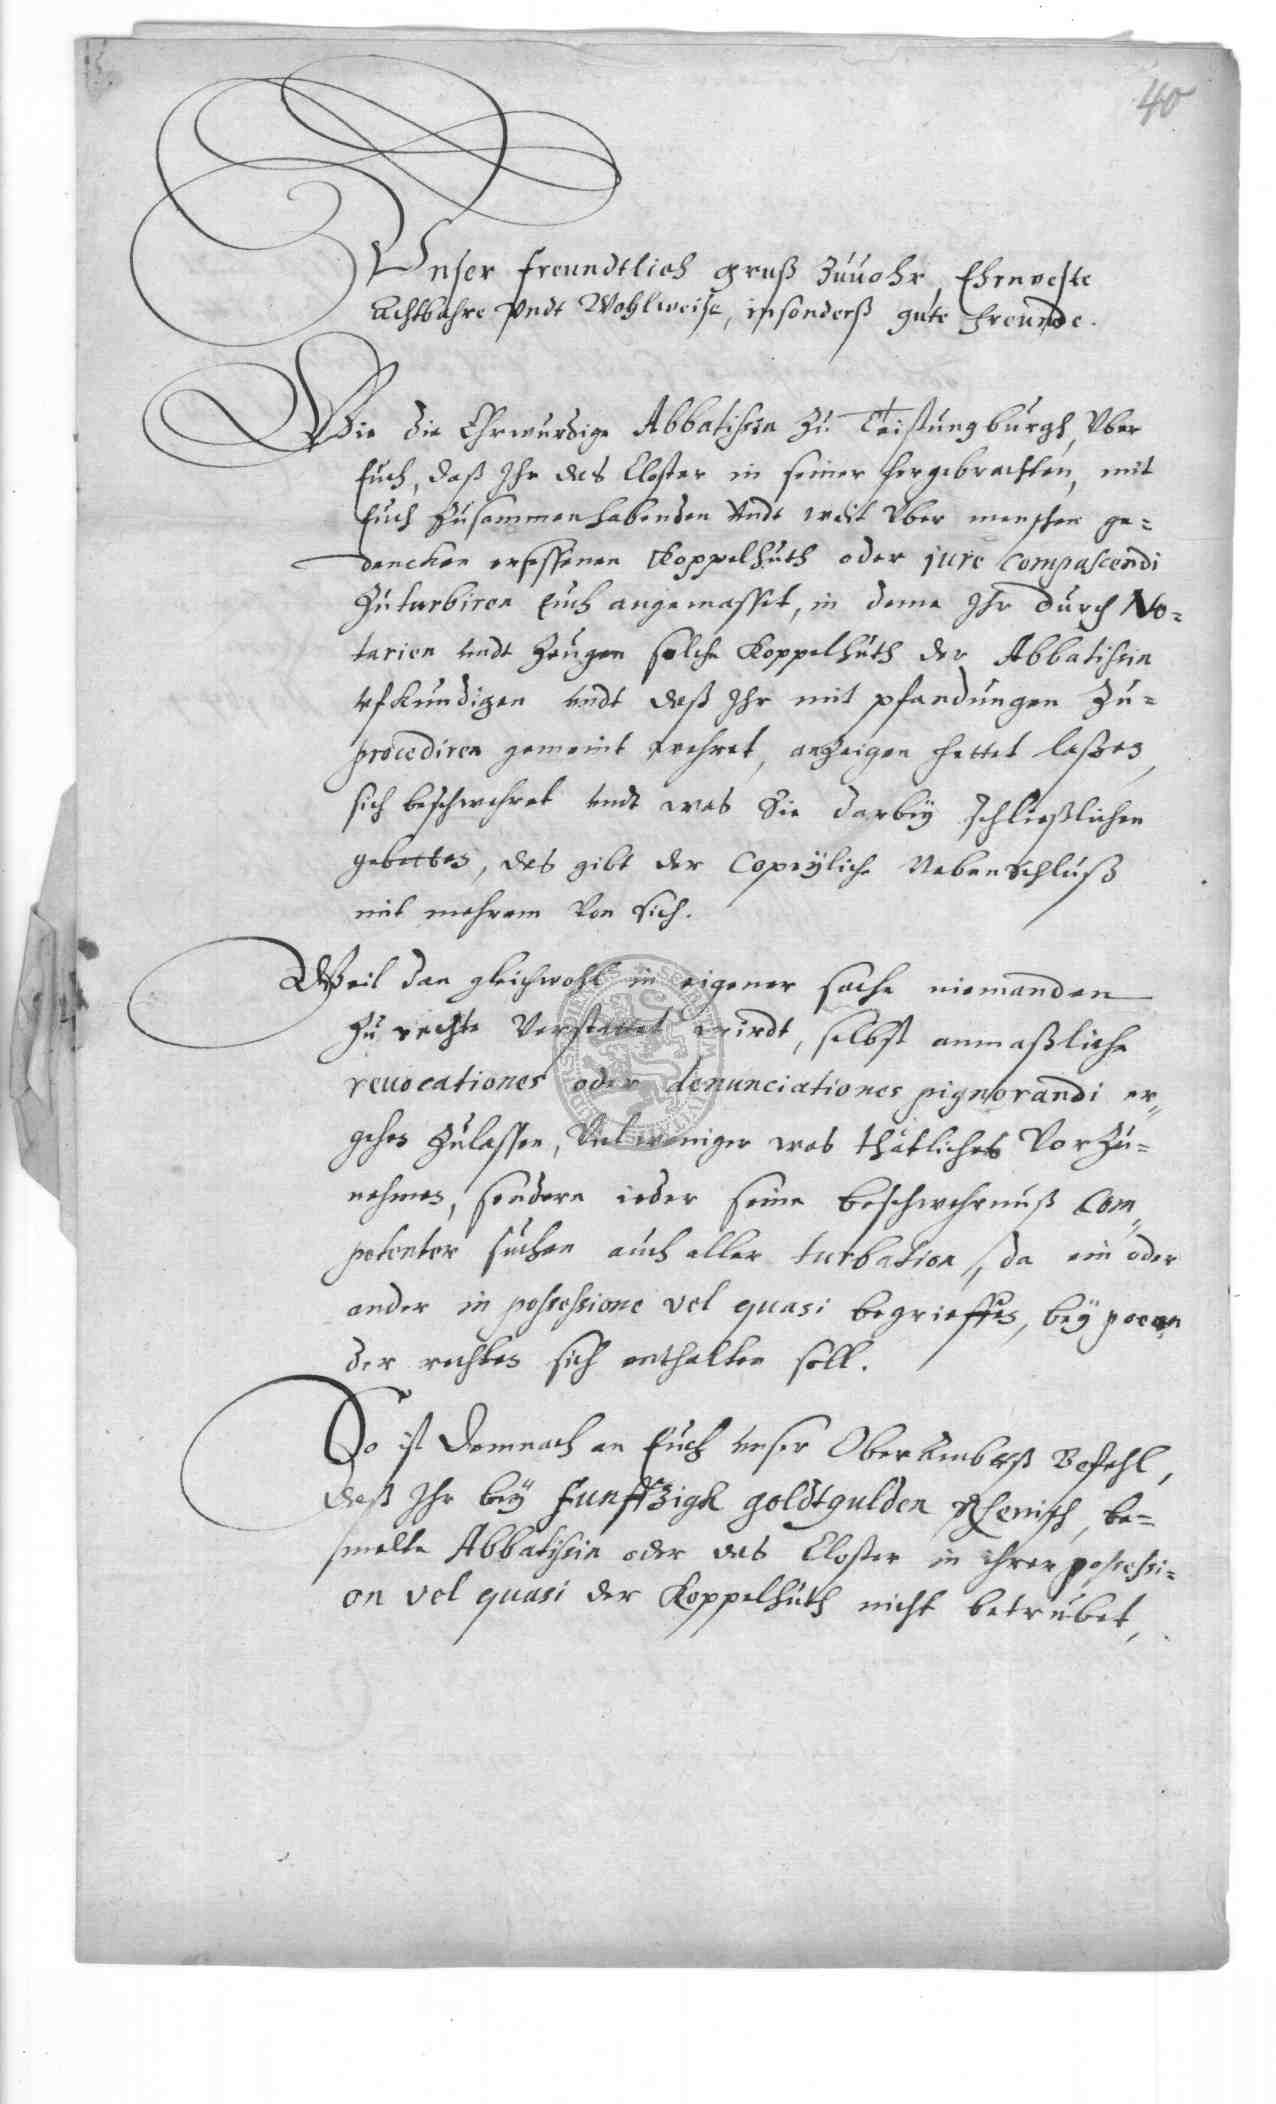 40
Unser freundtlich gruß Zuuohr, Ehrnveste
Achtbahre undt Wohlweise, insonderß gute Freunde.
Wie die Ehrwurdige Abbatissin zu Teistungburgh, Uber
Euch, daß Ihr das Closter in seiner hergebrachten, mit
Euch Zusammen habenden undt weit Uber menschen ge-
dencken ersessenen Koppelhuth oder jure compascendi
Zuturbiren Euch angemasset, in deme Ihr durch No-
tarien undt Zeugen solche Koppelhuth der Abbatissin
ufkundigen undt daß Ihr mit pfandungen Zu-
procediren gemeint wehret, anzeigen hettet laßen,
sich beschwehret undt was Sie darbey schließlichen
gebetten, das gibt der Copeyliche Nebenschluß
mit mehrem von sich.
Weil dan gleichwohl in eigener sache niemanden
Zu rechte Verstattet wirdt, selbst anmaßliche
reuocationes oder denunciationes pignorandi er-
gehen Zulassen, Viel weniger was thätliches Vorzu-
nehmen, sondern ieder seine beschwehrnuß com-
petenter suchen auch aller turbation, da ein oder
ander in possessione vel quasi begrieffen, bey poen
der rechten sich enthalten soll.
So ist demnach an Euch unser Oberambtß Befehl,
daß Ihr bey funffzigk goldtgulden Rhenisch, be-
melte Abbatissin oder das Closter in ihrer possessi-
on vel quasi der Koppelhuth nicht betrubet,